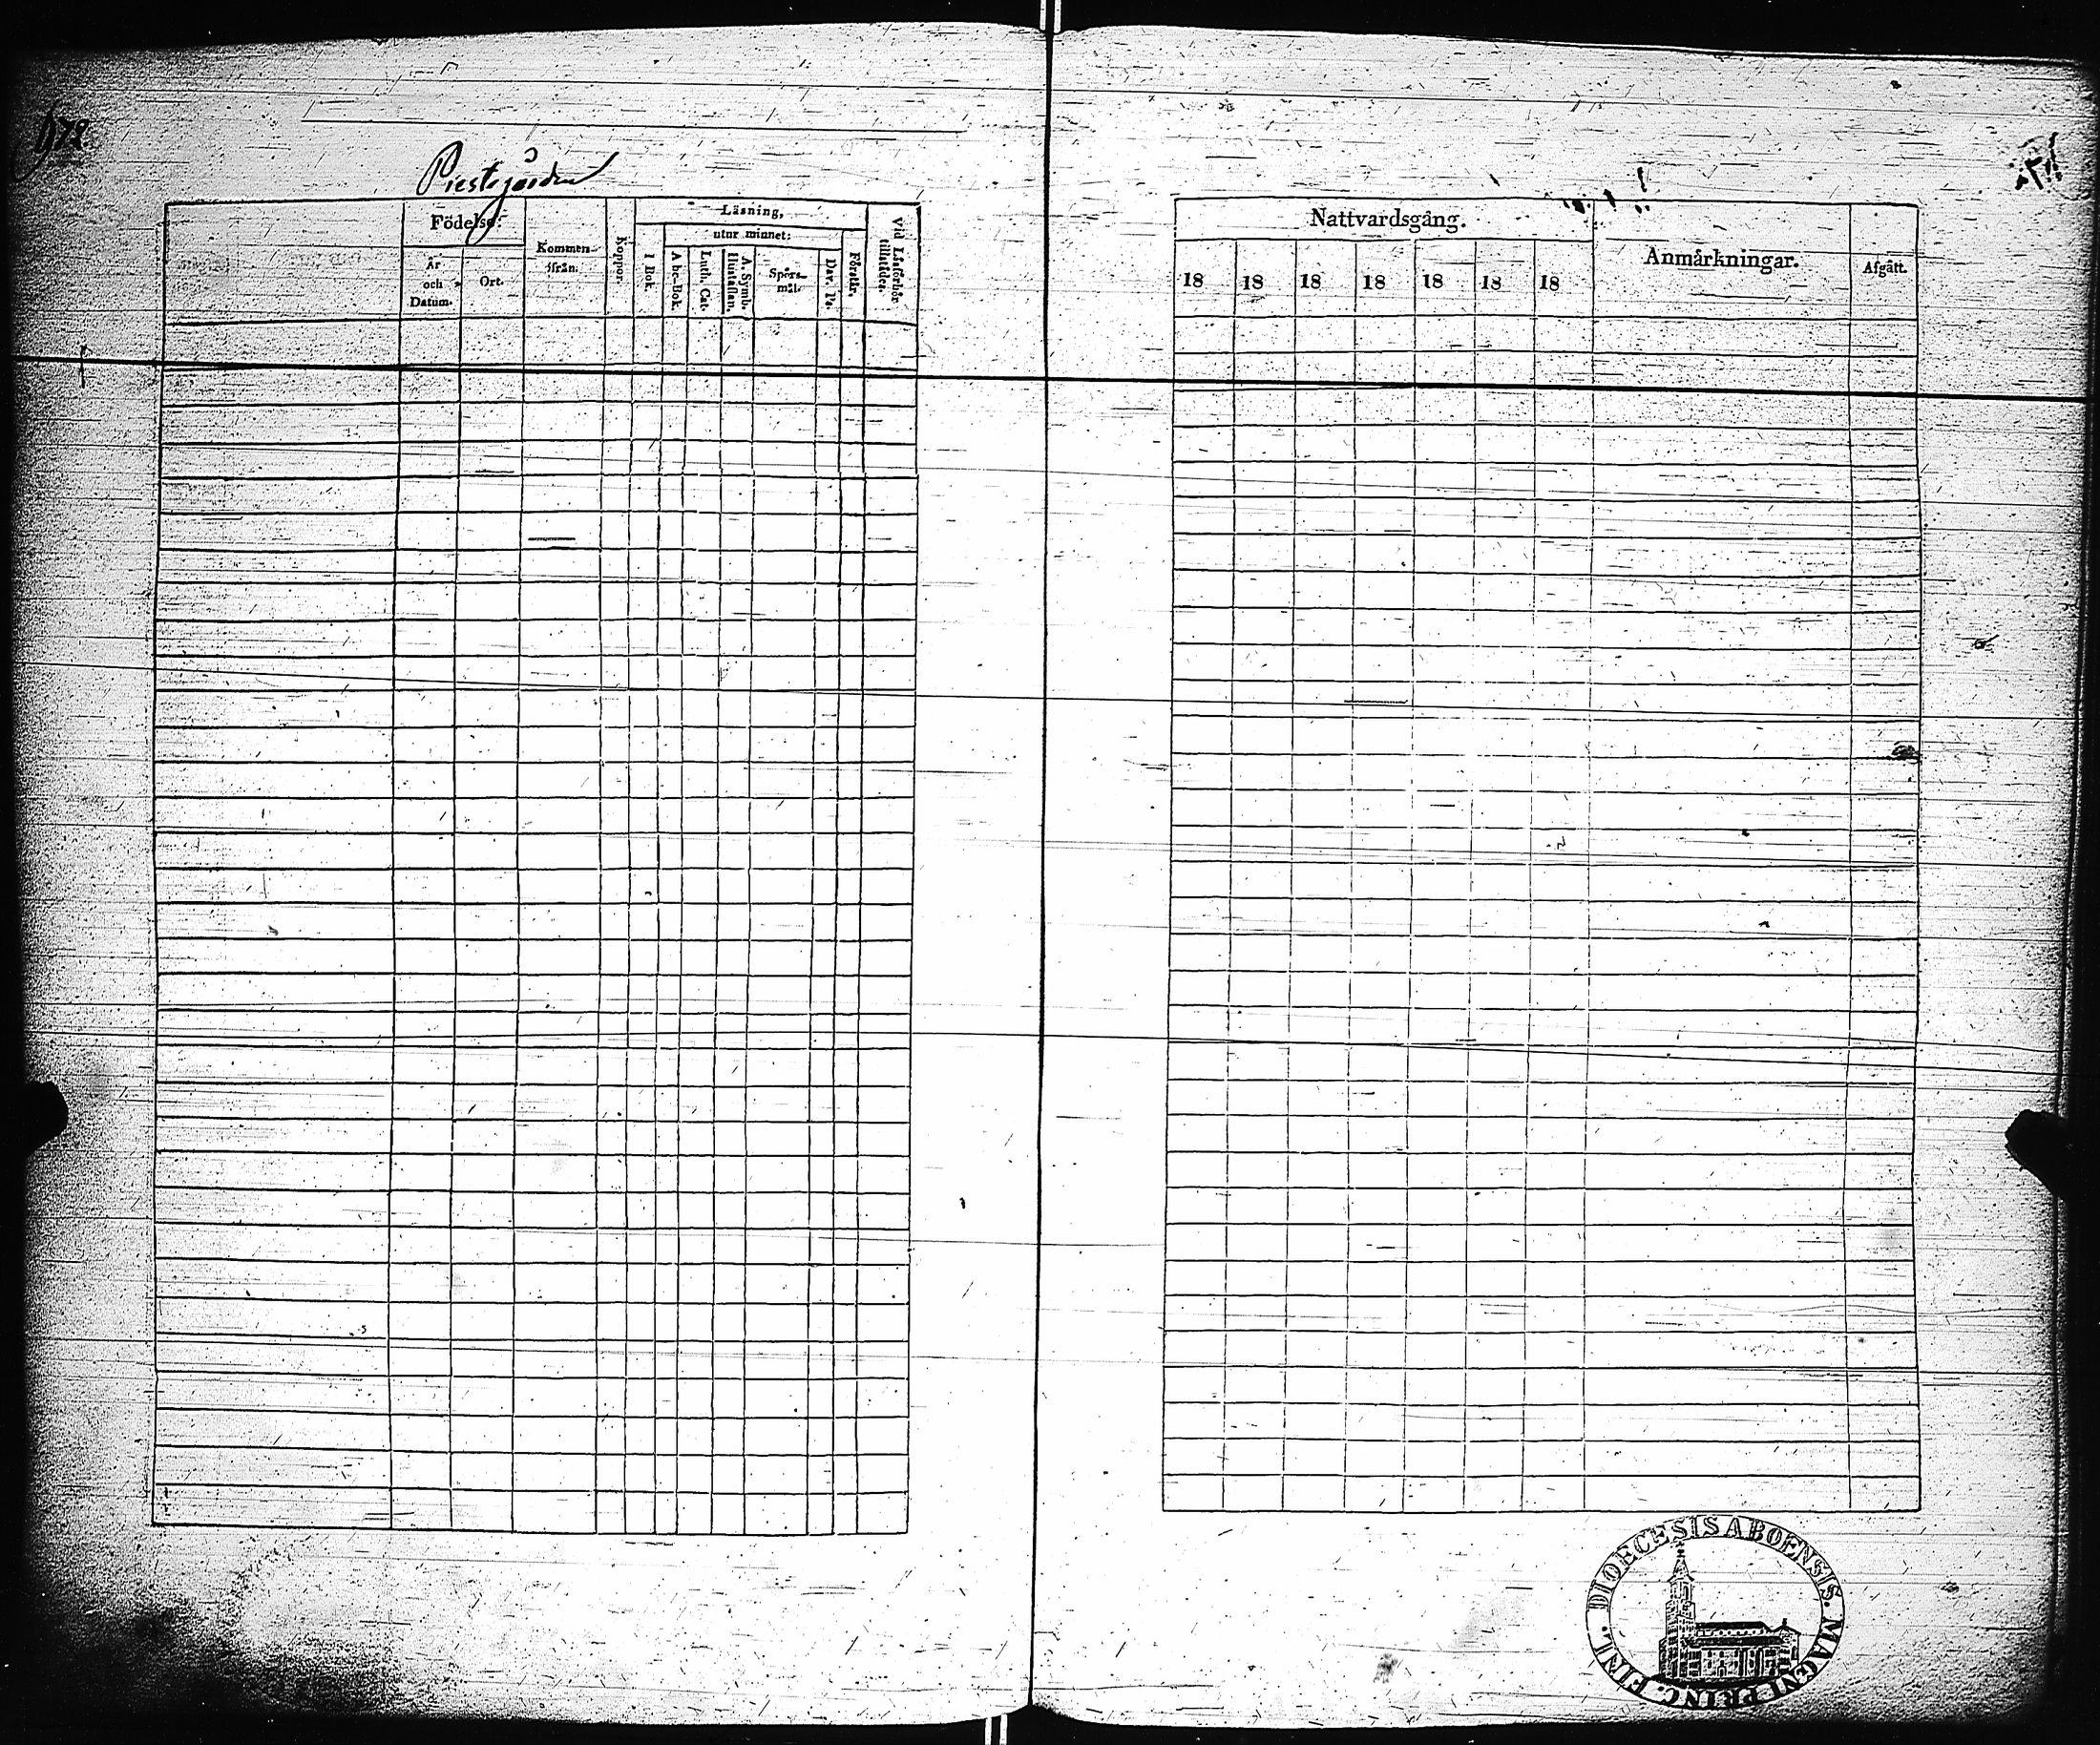 Prestegården
Födelse.
År och Datum.
Ort.
Kommen ifrån.
Koppor.
Läsning,
utur minnet:
I Bok.
A b c-Bok.
Luth. Cat.
A. Symb. Hustaflan.
Spörs- mål.
Dav. Ps.
Förstår.
Vid Läsförhör tillstädes.
Nattvardsgång.
18 18 18 18 18 18 18
Anmärkningar.
Afgått.
DIOECESIS ABOENSIS. MAGNI PRINC. FINL.